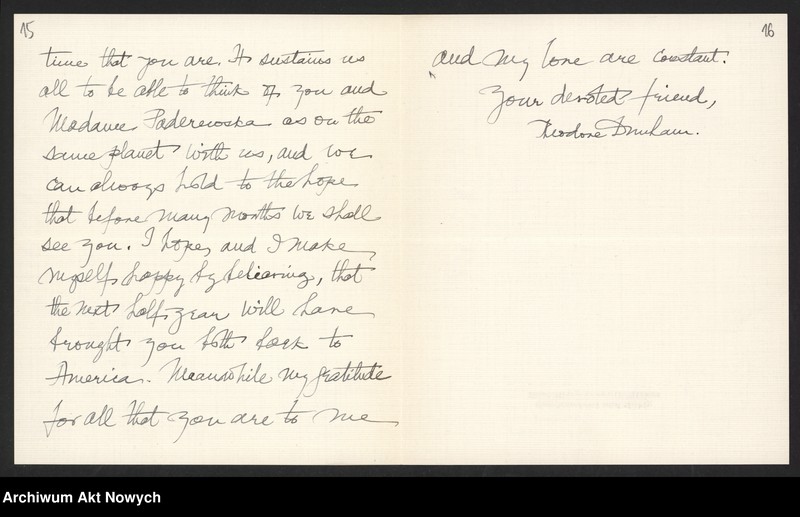 15
time that you are. It sustains us
all to be able to think of you and
Madame Paderewska as on the
same planet with us, and we
can always hold to the hope
that before many months we shall
see you. I hope, and I make
myself happy by believing, that
the next half-year will have
brought you both back to
America. Meanwhile my gratitude
for all that you are to me
16
and my love are constant.
Your devoted friend,
Theodore Dunham.
Archiwum Akt Nowych